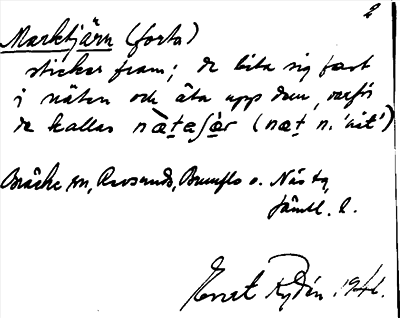 2
Marktjärn (forts)
sticker fram; de bita sig fast
i näten och äta upp dem, varför
de kallas næ̀ṭaʃèr (næṭ n. 'nät')
Bräcke sn, Revsunds, Brunflo o. Näs tg,
Jämtl. l.
Ernst Rydén. 1946.